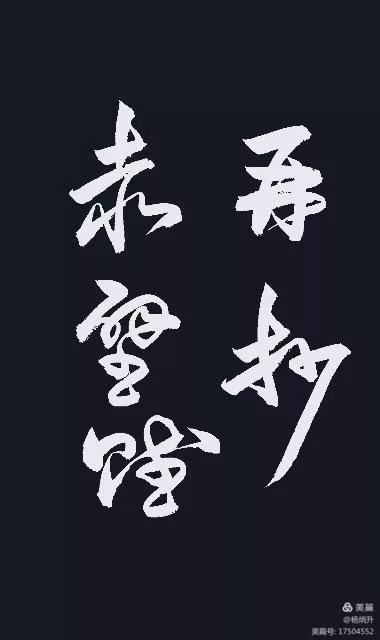 再抄
赤壁赋
美篇
@杨炳升
美篇号: 17504552